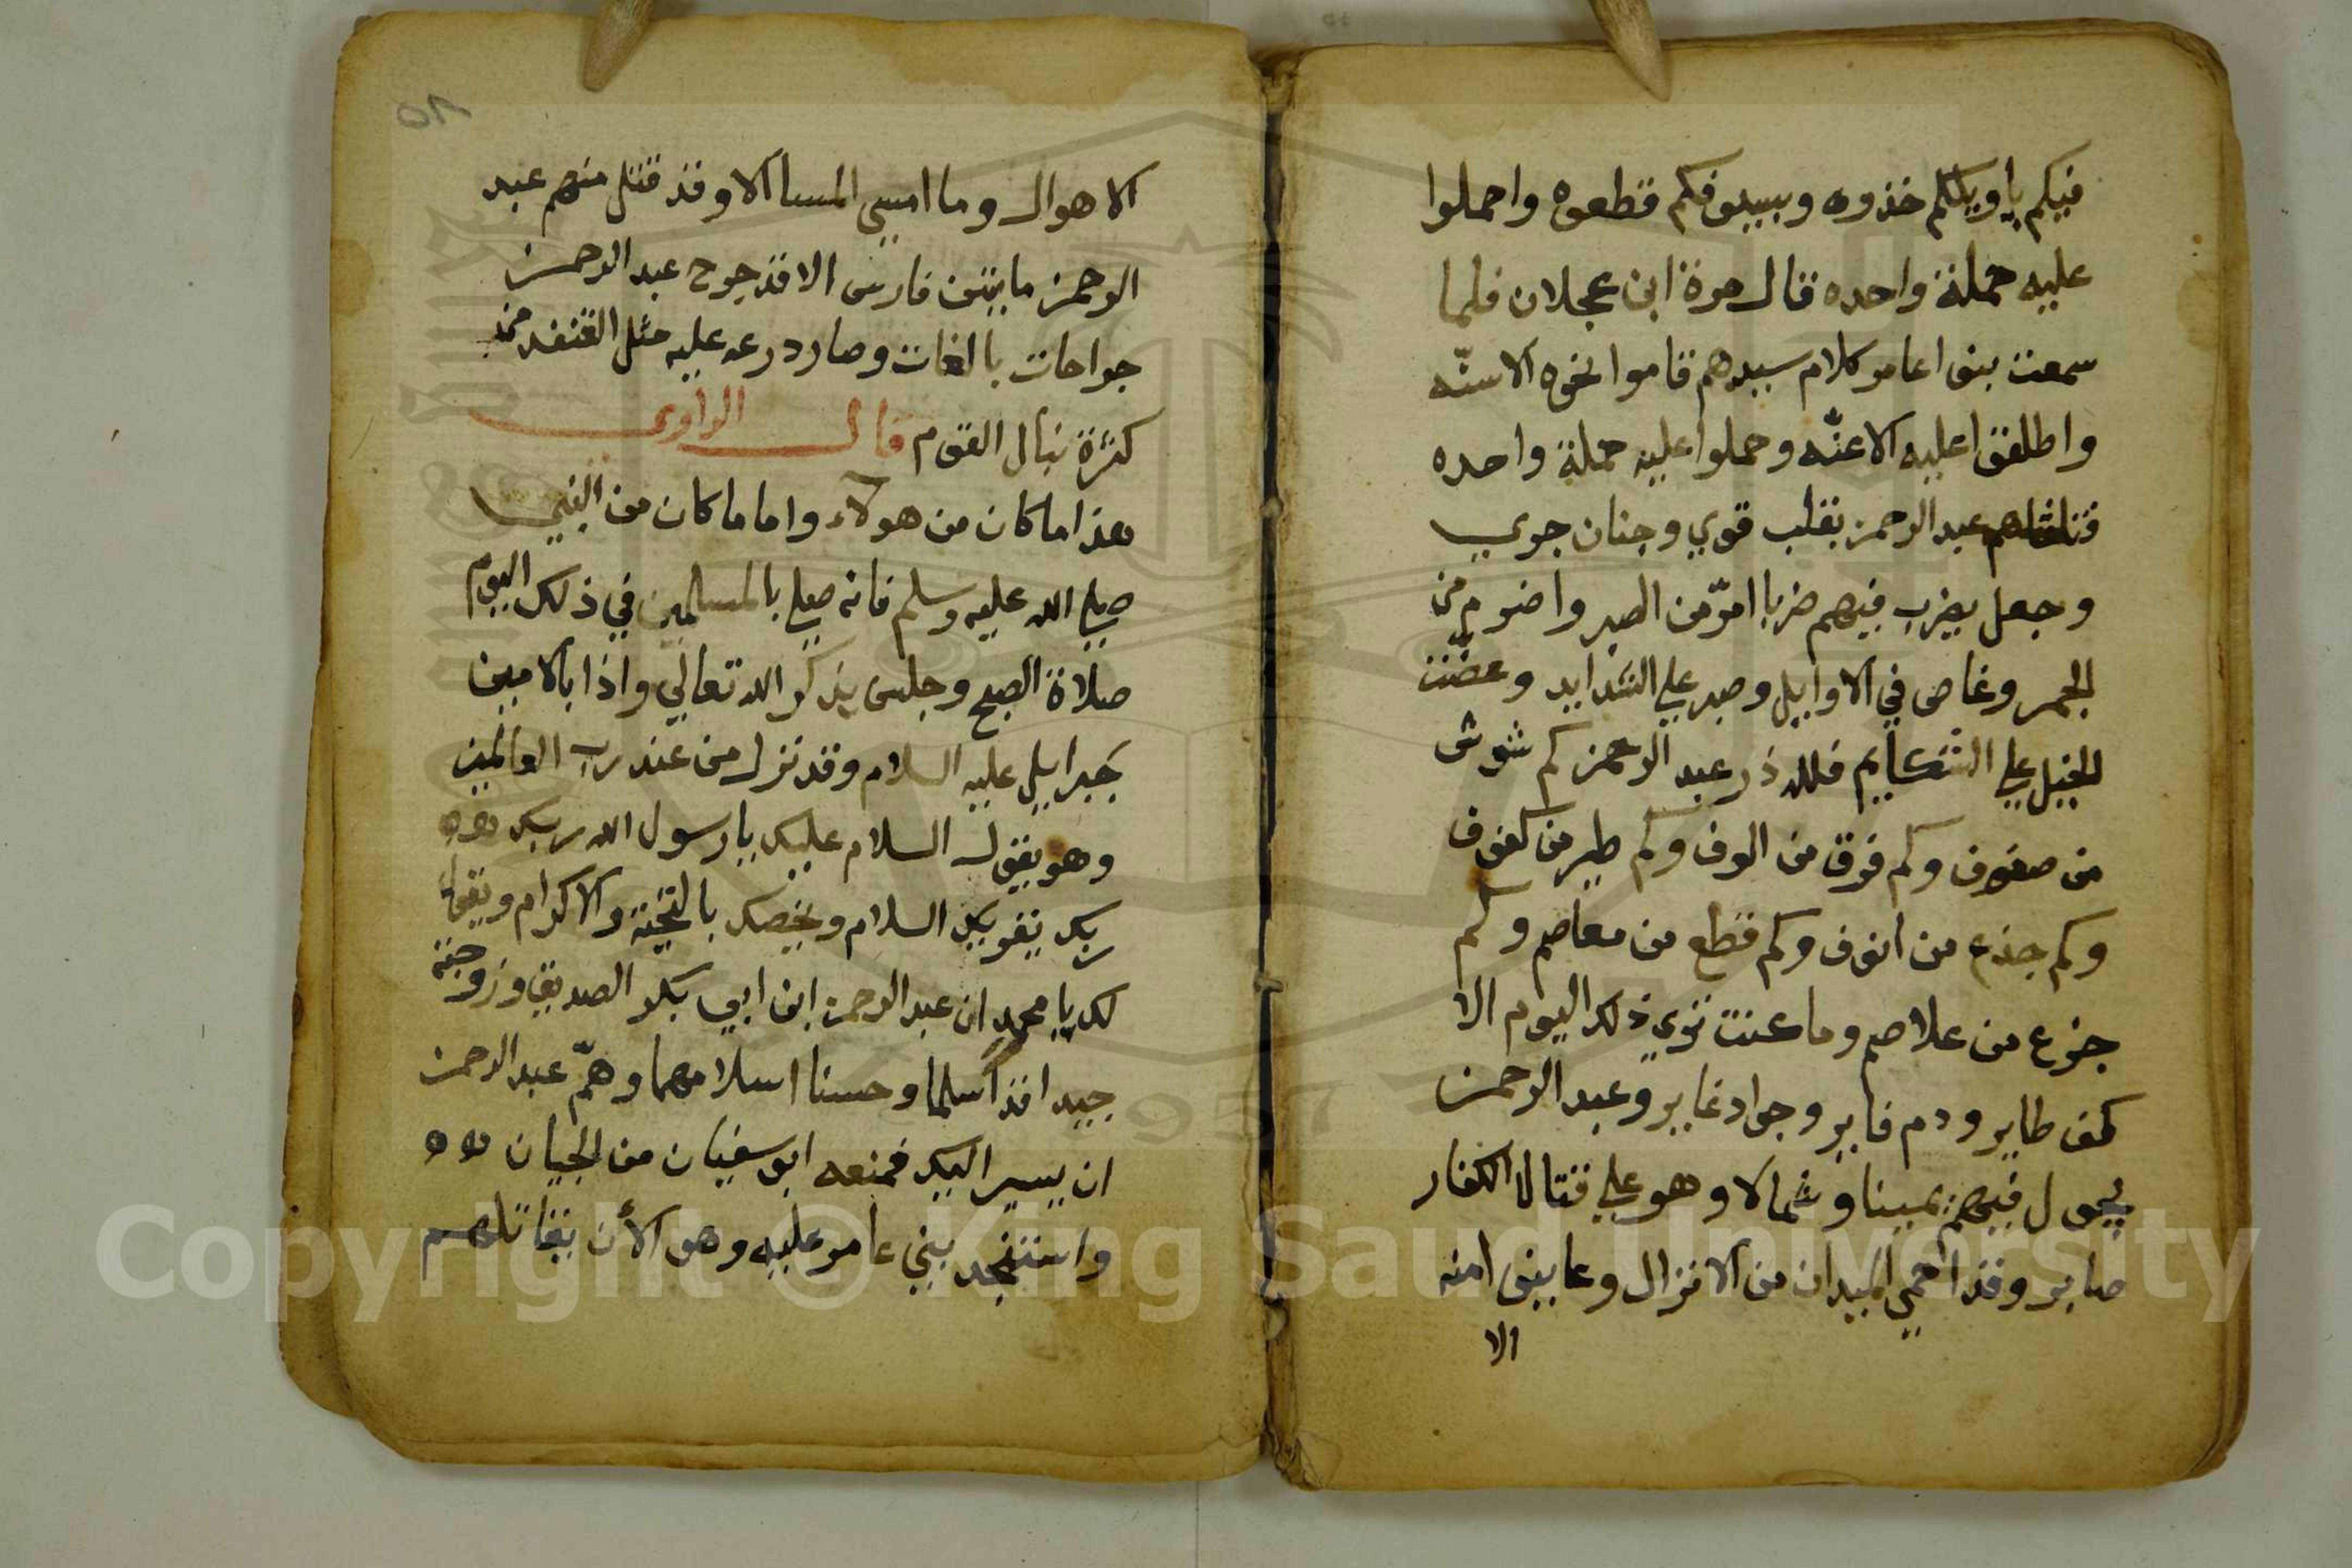 فيكم ياويلكم خذوه وبسيوفكم قطعوه واحملوا
عليه حملة واحده قال مرة ابن عجلان فلما
سمعت بنوا عامر كلام سيدهم قاموا نحوه الاسنّه
واطلقوا عليه الاعنّه وحملوا عليه حملة واحده
عبد الرحمن بقلب قوي وجنان جري
وجعل يضرب فيهم ضربا امرّ من الصبر واضرم من
الجمر وغاص في الاوايل وصبر علي الشدايد وعضّت
الخيل علي الشكايم فلله در عبد الرحمن كم شوش
من صفوف وكم فرق من الوف وكم طير من كفوف
وكم جذع من انوف وكم قطع من معاصم وكم
جزع من علاصم وما عنت تري ذلك اليوم الا
كف طاير ودم فاير وجواد غاير وعبد الرحمن
يجول فيهم يمينا وشمالا وهو علي قتال الكفار
صابر وقد احمي الميدان من الانزال وعاينوا منه
الا
٥٨
الاهوال وما امسي المسا الا وقد قتل منهم عبد
الرحمن مايتين فارس الا قد جرح عبد الرحمن
جراحات بالغات وصار درعه عليه مثل القنفد من
كثرة نبال القوم قال الراوي
هذا ما كان من هولاء واما ما كان من النبي
صلي الله عليه وسلم فانه صلي بالمسلمين في ذلك اليوم
صلاة الصبح وجلس يذكر الله تعالي واذا بالامين
جبرايل عليه السلام وقد نزل من عند رب العالمين
وهو يقول السلام عليك يا رسول الله ربك
ربك يقريك السلام ويخصك بالتحية والاكرام ويقول
لك يا محمد ان عبد الرحمن ابن ابي بكر الصديق وزوجته
جيدا قد اسلما وحسنا اسلامهما وهمّ عبد الرحمن
ان يسير اليك فمنعه ابو سفيان من الجيان
واستنجد بني عامر عليه وهو الأن يقاتلهم
Copyright © King Saud University
1957